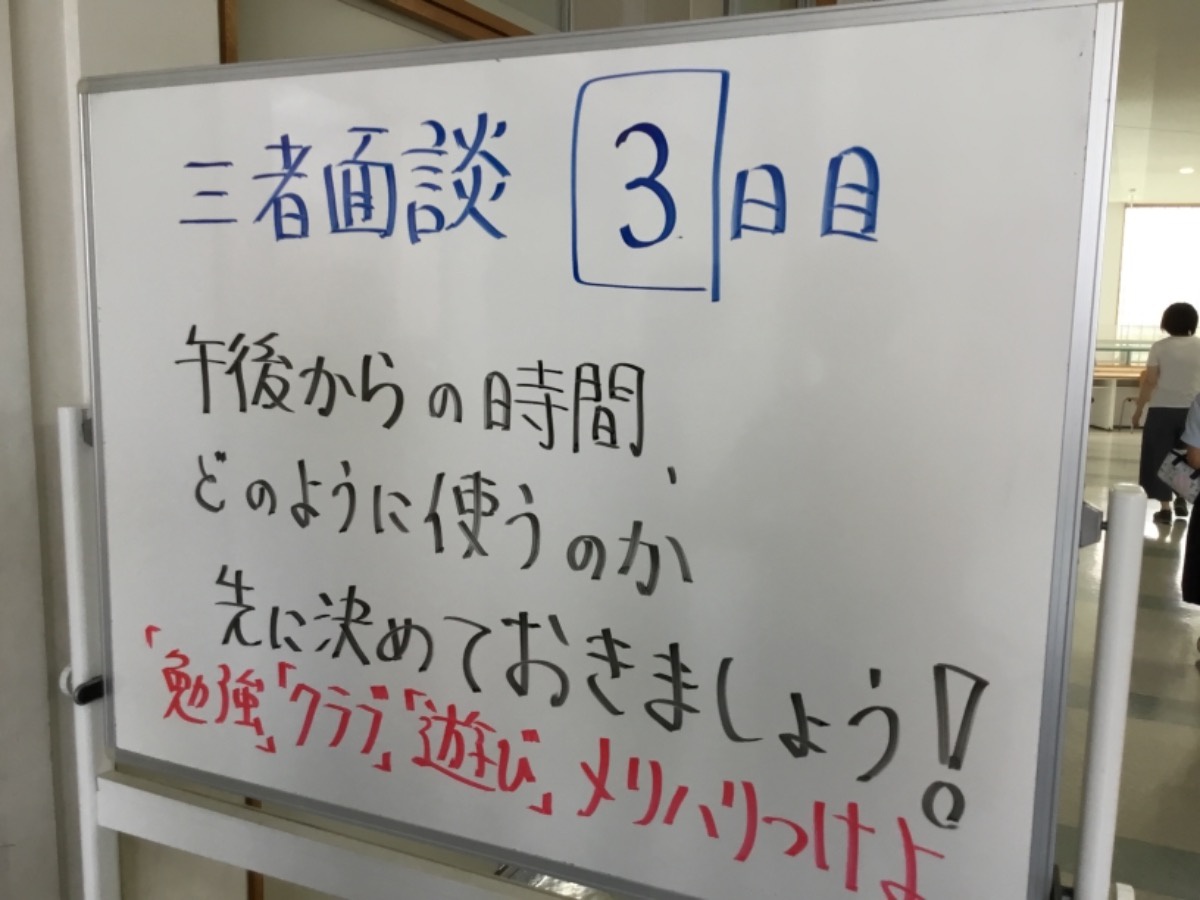 三者面談 3日目
午後からの時間、
どのように使うのか
先に決めておきましょう!
「勉強」「クラブ」「遊び」メリハリつけよ